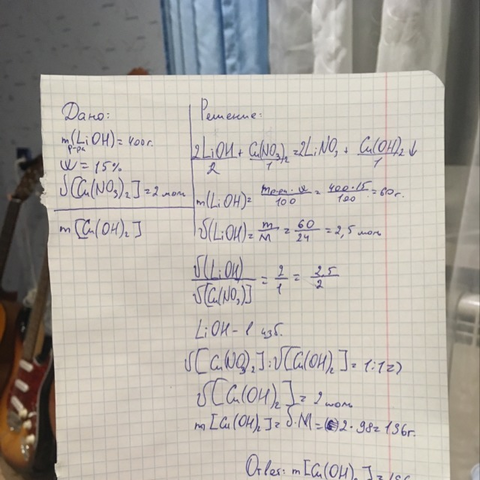 Дано:
m р-ра (LiOH) = 400г.
W = 15%
ν[Cu(NO₃)₂] = 2 моль
m[Cu(OH)₂]
Решение:
2LiOH + Cu(NO₃)₂ = 2LiNO₃ + Cu(OH)₂↓
2 1 1
m(LiOH) = mр-ра · ω / 100 = 400·15 / 100 = 60г.
ν(LiOH) = m / M = 60 / 24 = 2,5 моль
ν(LiOH) / ν[Cu(NO₃)] = 2 / 1 = 2,5 / 2
LiOH – в изб.
ν[Cu(NO₃)₂] : ν[Cu(OH)₂] = 1:1 =>
ν[Cu(OH)₂] = 2 моль
m[Cu(OH)₂] = ν·M = 2·98 = 196г.
Ответ: m[Cu(OH)₂] =